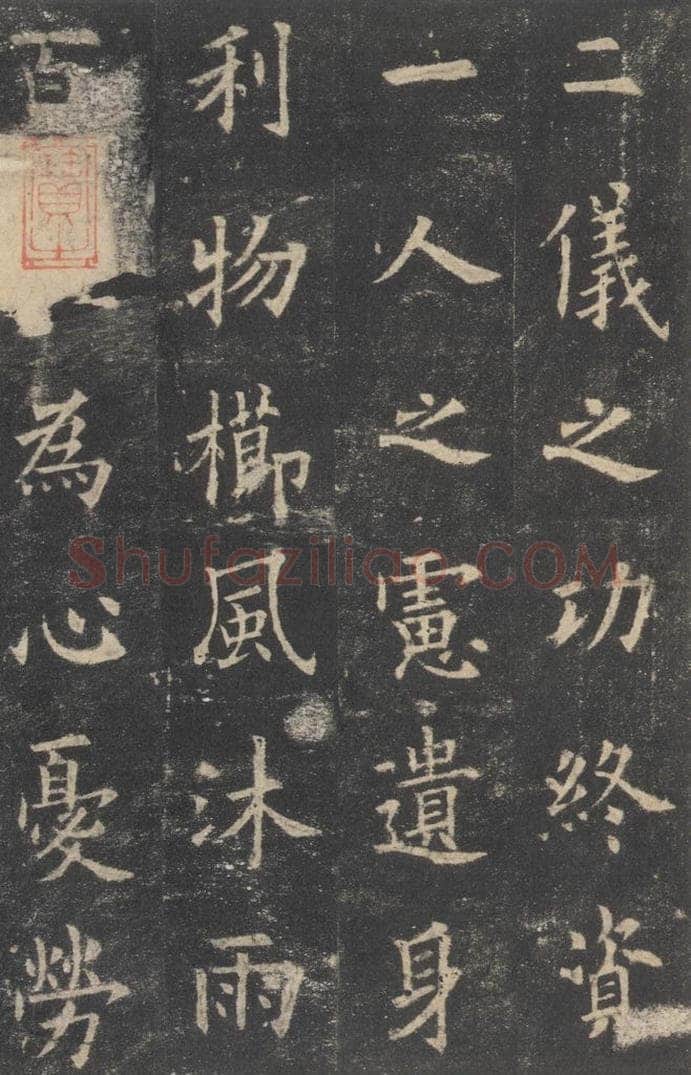 二儀之功終資
一人之慮遺身
利物櫛風沐雨
百為心憂勞
Shufaziliao.COM